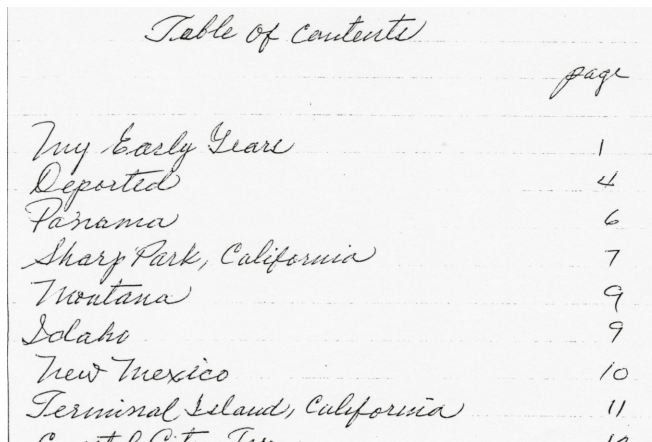 Table of Contents
page
My Early Years 1
Deported 4
Panama 6
Sharp Park, California 7
Montana 9
Idaho 9
New Mexico 10
Terminal Island, California 11